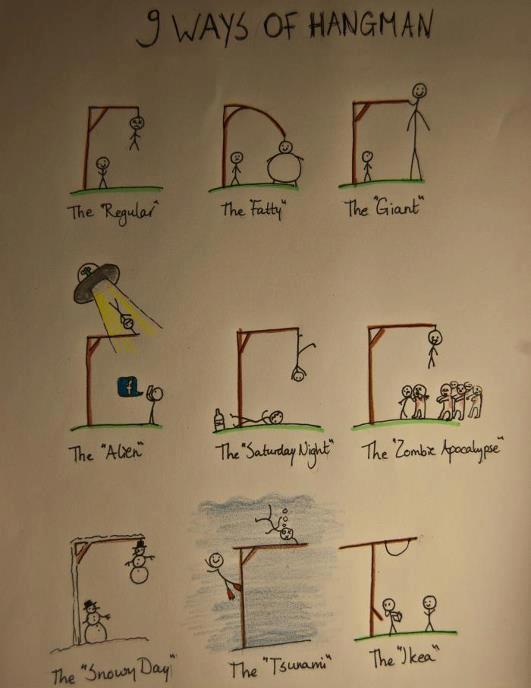 9 WAYS OF HANGMAN
The "Regular"
The "Fatty"
The "Giant"
The "Alien"
The "Saturday Night"
The "Zombie Apocalypse"
The "Snowy Day"
The "Tsunami"
The "Ikea"